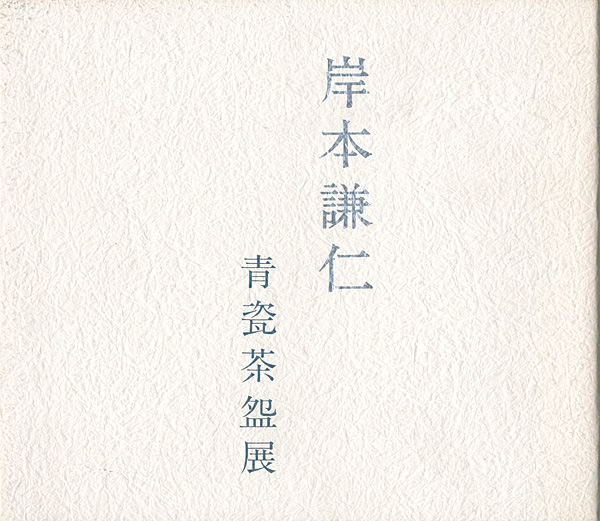 岸本謙仁
青瓷茶盌展